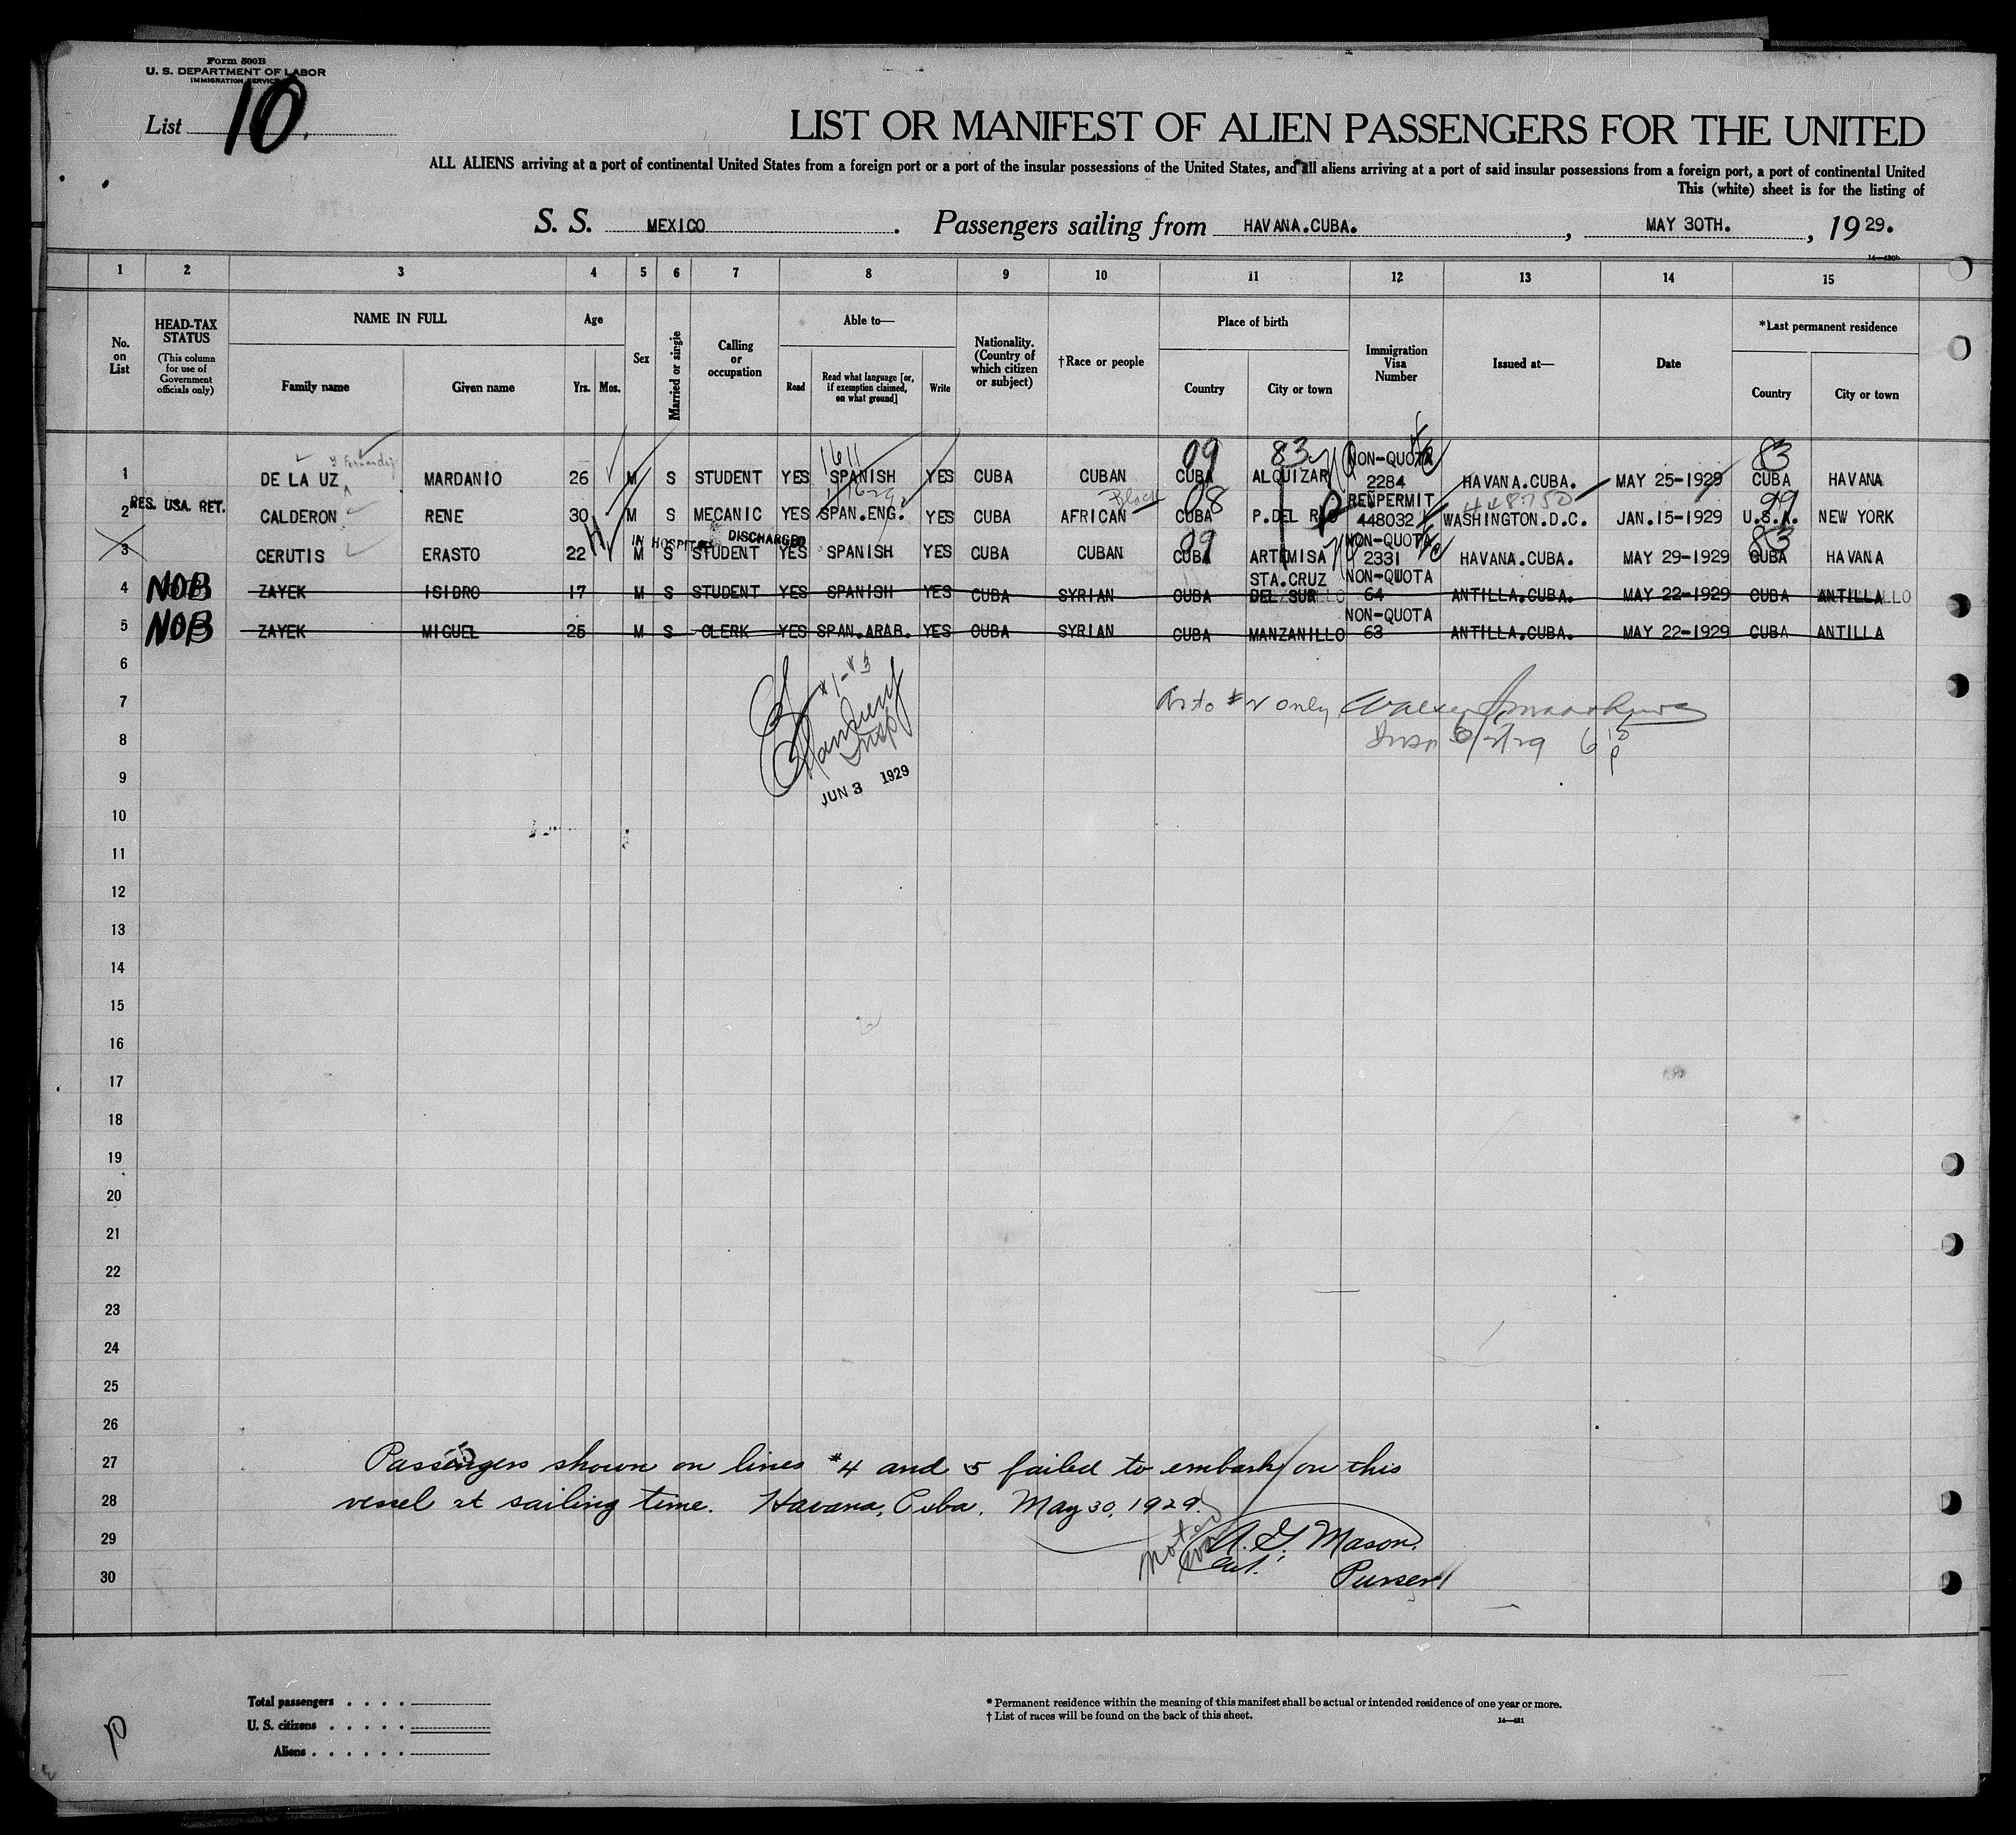 Form 500B
U. S. DEPARTMENT OF LABOR
IMMIGRATION SERVICE
List 10.
LIST OR MANIFEST OF ALIEN PASSENGERS FOR THE UNITED
ALL ALIENS arriving at a port of continental United States from a foreign port or a port of the insular possessions of the United States, and all aliens arriving at a port of said insular possessions from a foreign port, a port of continental United
This (white) sheet is for the listing of
S. S. MEXICO. Passengers sailing from HAVANA.CUBA. , MAY 30TH. , 19 29.
14—430b
1 2 3 4 5 6 7 8 9 10 11 12 13 14 15
No. on List
HEAD-TAX STATUS
(This column for use of Government officials only)
NAME IN FULL
Family name
Given name
Age
Yrs. Mos.
Sex
Married or single
Calling or occupation
Able to—
Read
Read what language [or, if exemption claimed, on what ground]
Write
Nationality. (Country of which citizen or subject)
†Race or people
Place of birth
Country
City or town
Immigration Visa Number
Issued at—
Date
*Last permanent residence
Country
City or town
y Fernandez
1611 09 83 83
1 DE LA UZ MARDANIO 26 M S STUDENT YES SPANISH YES CUBA CUBAN CUBA ALQUIZAR NON-QUOTA 2284 HAVANA.CUBA. MAY 25-1929 CUBA HAVANA
Black 08 448750 99
2 RES. USA. RET. CALDERON RENE 30 M S MECANIC YES SPAN.ENG. YES CUBA AFRICAN CUBA P.DEL RIO REENPERMIT 448032 WASHINGTON.D.C. JAN.15-1929 U.S.A. NEW YORK
IN HOSPITAL DISCHARGED 09 83
3 CERUTIS ERASTO 22 M S STUDENT YES SPANISH YES CUBA CUBAN CUBA ARTEMISA NON-QUOTA 2331 HAVANA.CUBA. MAY 29-1929 CUBA HAVANA
4 NOB ZAYEK ISIDRO 17 M S STUDENT YES SPANISH YES CUBA SYRIAN CUBA STA.CRUZ DEL SUR NON-QUOTA 64 ANTILLA.CUBA. MAY 22-1929 CUBA ANTILLA
5 NOB ZAYEK MIGUEL 25 M S CLERK YES SPAN.ARAB. YES CUBA SYRIAN CUBA MANZANILLO NON-QUOTA 63 ANTILLA.CUBA. MAY 22-1929 CUBA ANTILLA
6
7 only
8
Insp
9
JUN 3 1929
10
11
12
13
14
15
16
17
18
19
20
21
22
23
24
25
26
27 Passengers shown on lines #4 and 5 failed to embark on this
28 vessel at sailing time. Havana, Cuba. May 30, 1929.
29 noted A. G. Mason,
30 Purser
Total passengers . . . .
U. S. citizens . . . . .
Aliens . . . . . .
* Permanent residence within the meaning of this manifest shall be actual or intended residence of one year or more.
† List of races will be found on the back of this sheet.
14—431
10